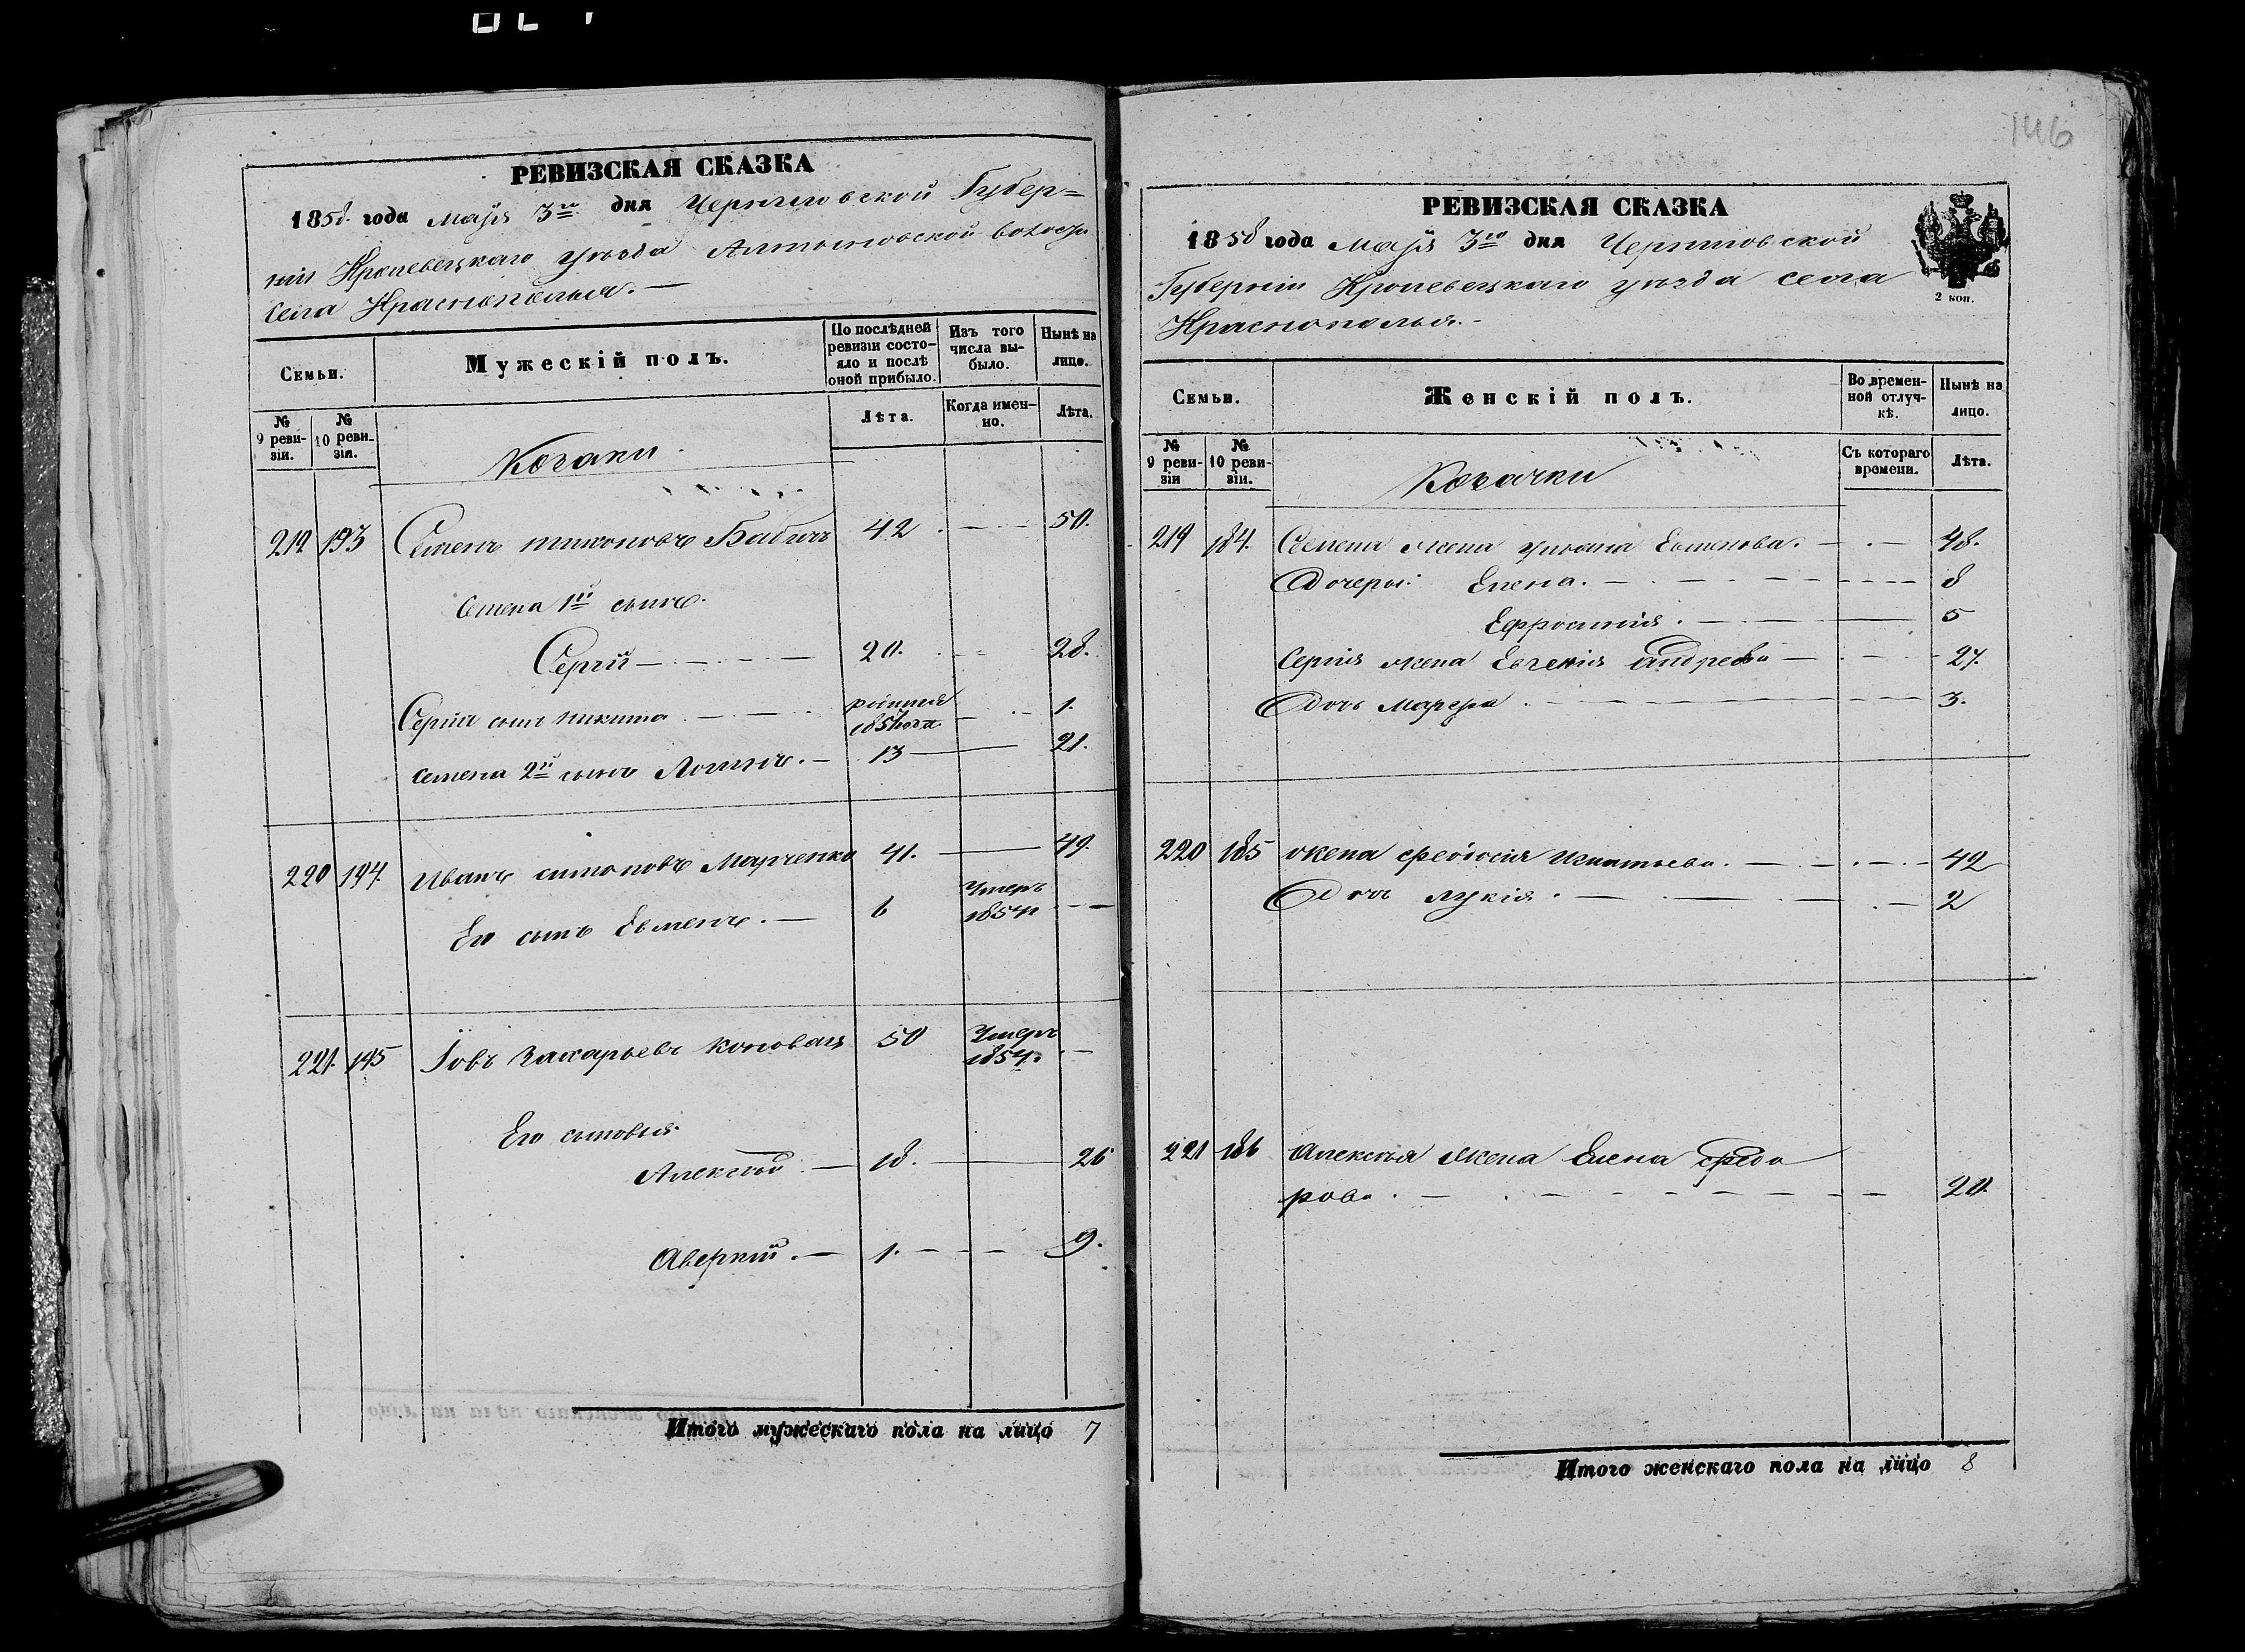 146
РЕВИЗСКАЯ СКАЗКА
1858 года Маія 3го дня Черниговской Губер=
ніи Кролевецкаго уѣзда Алтыновской волости
села Краснополья. —
Семьи.
Мужескій полъ.
По послѣдней ревизіи состо-
яло и послѣ оной прибыло.
Изъ того числа вы-
было.
Нынѣ на лицо.
№ 9 реви-
зіи.
№ 10 реви-
зіи.
Козаки
Лѣта.
Когда имен-
но.
Лѣта.
219 193 Семенъ Тихоновъ Бабичъ 42 50.
Семена 1й сынъ
Сергій 20. 28.
Сергія сынъ Никита родился 1857 года 1.
Семена 2й сынъ Логинъ. 13 21.
220 194 Иванъ Антоновъ Марченко 41. 49.
Его сынъ Евменъ. 6 Умеръ 1854
221. 195 Іовъ Захарьевъ Коновалъ 50 Умеръ 1854.
Его сыновья
Алексѣй 18. 26
Аверкій. 1. 9.
Итого мужескаго пола на лицо 7
РЕВИЗСКАЯ СКАЗКА
1858 года Маія 3го дня Черниговской
Губерніи Кролевецкаго уѣзда села
Краснополья.
2 коп.
Семьи.
Женскій полъ.
Во времен-
ной отлуч-
кѣ.
Нынѣ на лицо.
№ 9 реви-
зіи
№ 10 реви-
зіи.
Козачки
Съ котораго времени.
Лѣта.
219 184. Семена жена Ульяна Евменова. 48.
Дочеры: Елена. 8
Ефросинія. 5
Сергія жена Евгенія Андреева 27.
Дочь Марфа 3.
220 185 жена Феодосія Игнатьева. 42
Дочь Лукія. 2
221 186 Алексѣя жена Елена Федо
рова. 20.
Итого женскаго пола на лицо 8